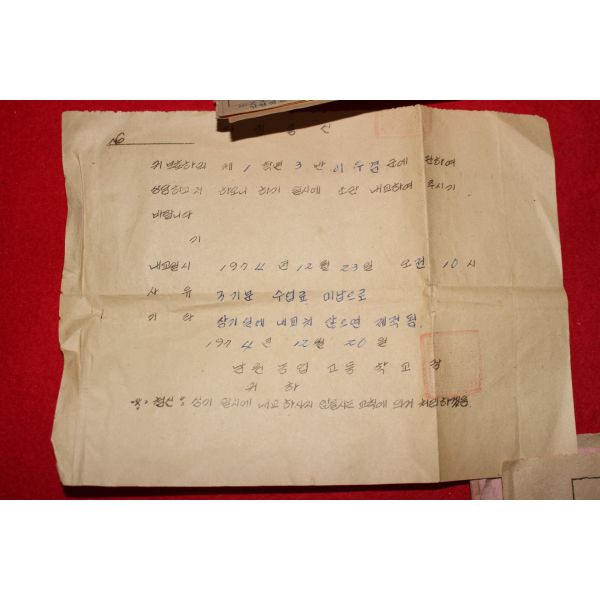 No
귀번호하의 제 1 학년 3 반 이수겸 군에 관하여
상담하고저 하오니 하기 일시에 소간 내교하여 주시기
바랍니다
기
내교일시 1974년 12월 23일 오전 10시
사유 3기분 수업료 미납으로
기타 상기일에 내교치 않으면 제적됨.
1974년 12월 20일
남원농업고등학교장
귀하
상기 일시에 내교하시지 않을시는 교칙에 의거 처리하겠음.